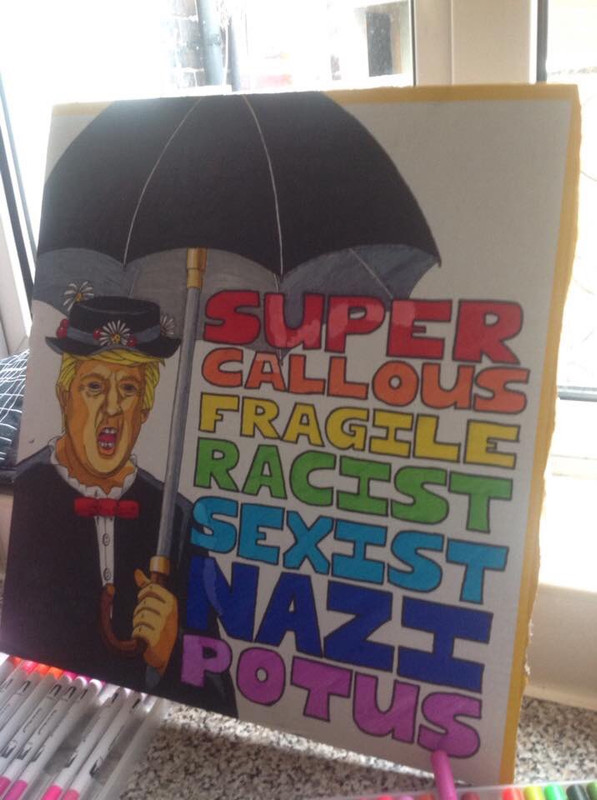 SUPER
CALLOUS
FRAGILE
RACIST
SEXIST
NAZI
POTUS